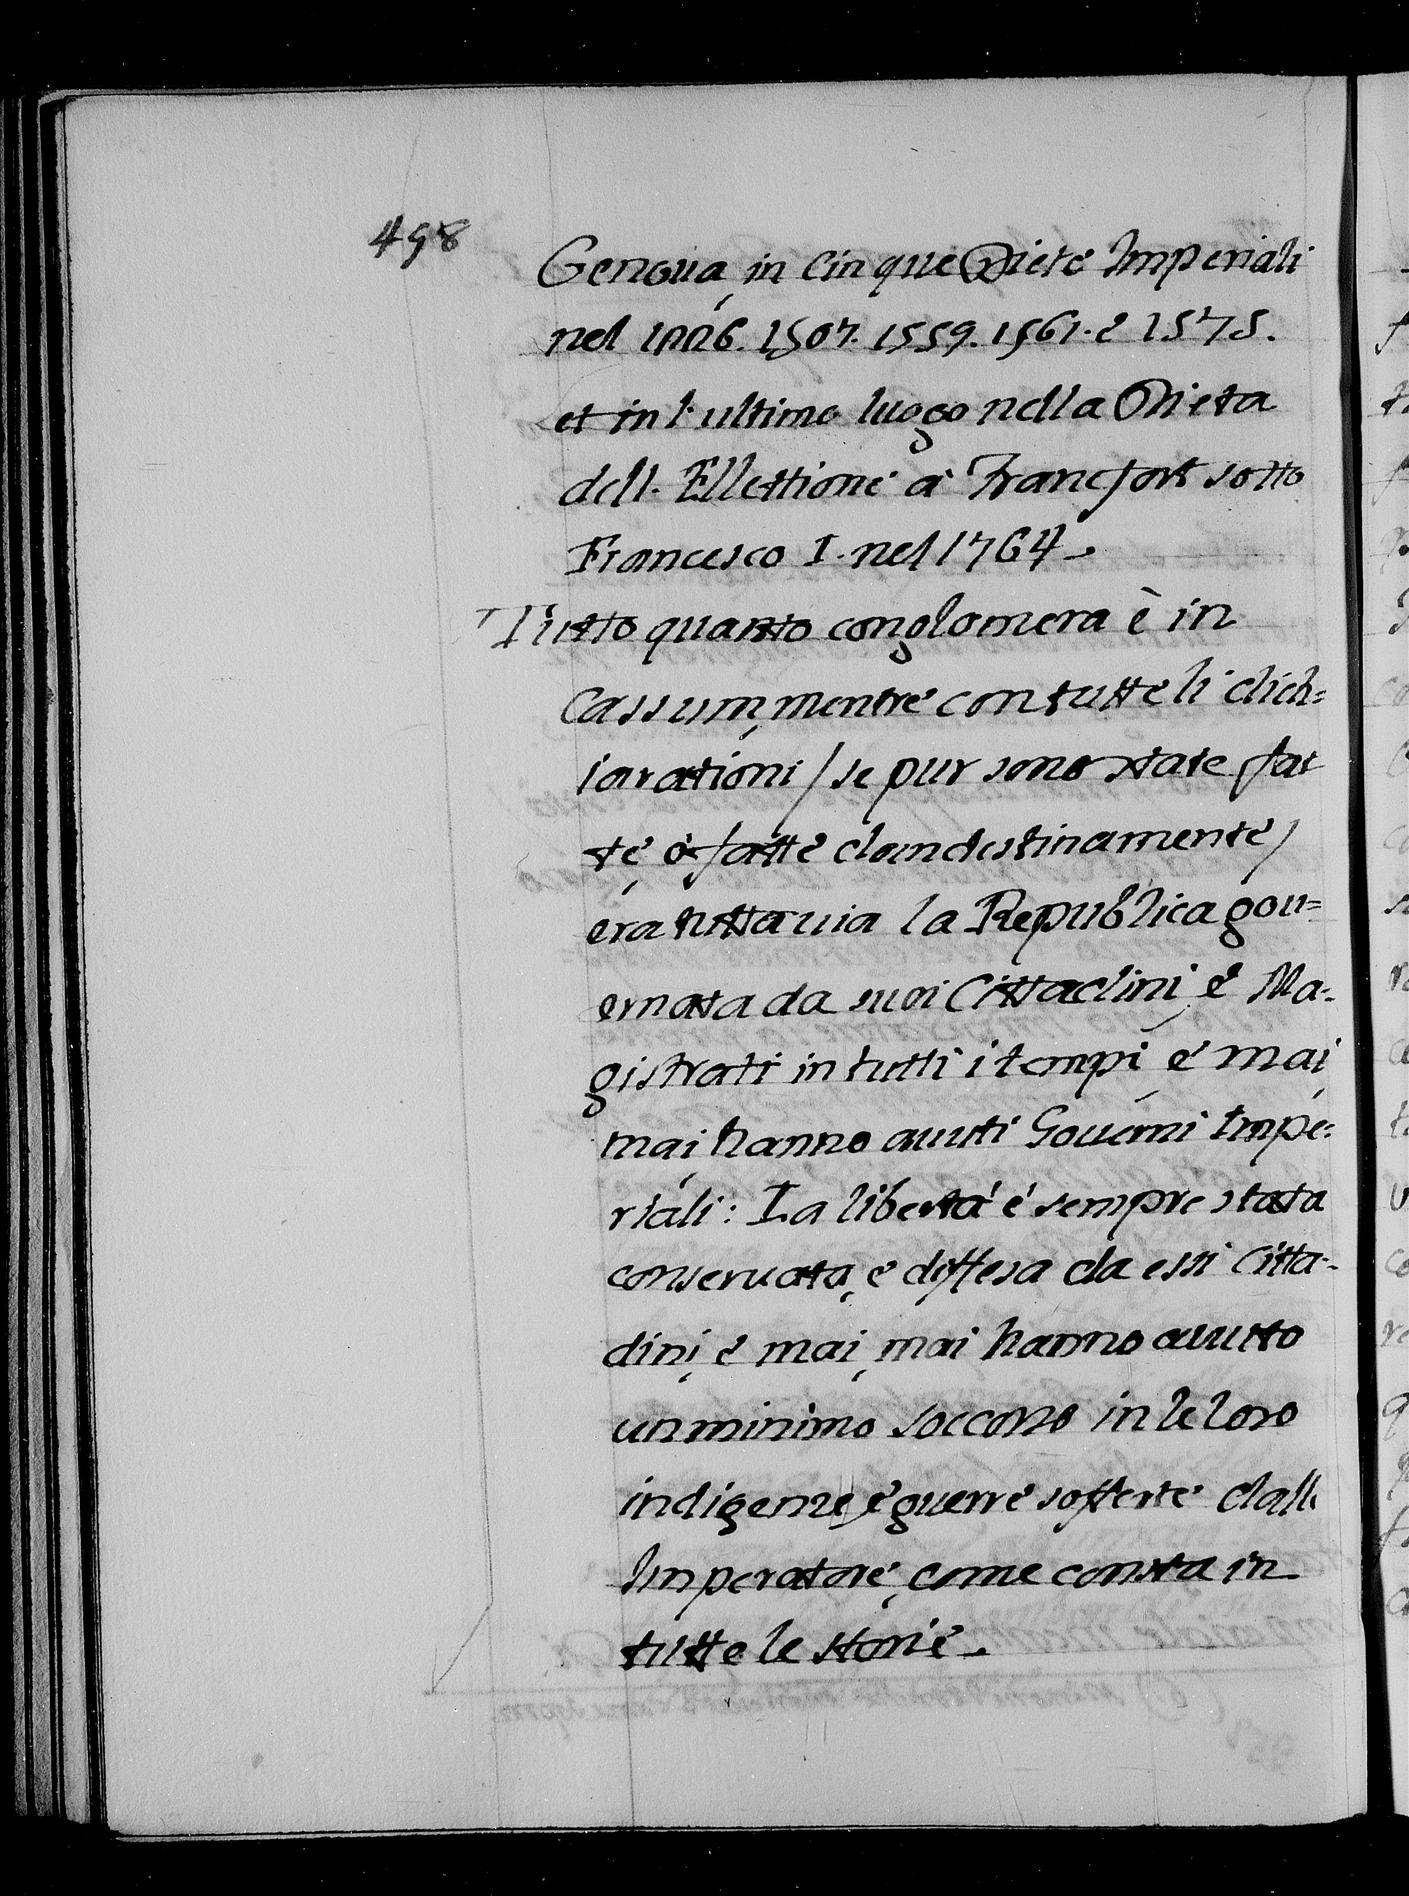 498
Genoua, in Cinque Diete Imperiali
nel 1496. 1507. 1559. 1561. è 1575.
et in l'ultimo luogo nella Dieta
dell. Ellettione à Francfort sotto
Francesco I. nel 1764.
Tutto quanto conglomera è in
Cassum, mentre con tutte li dich=
iarationi / se pur sono state fat
te, ò fatte clandestinamente /
era tuttauia la Republica gou=
ernata da suoi Cittadini, è Ma-
gistrati in tutti i tempi, è mai,
mai hanno auuti Gouerni Impe-
riali: La libertà è sempre stata
conseruata, e diffesa da essi Citta-
dini, è mai, mai hanno auutto
un minimo soccorso in le loro
indigenze, è guerre sofferte dall
Imperatore, come consta in
tutte le storie.